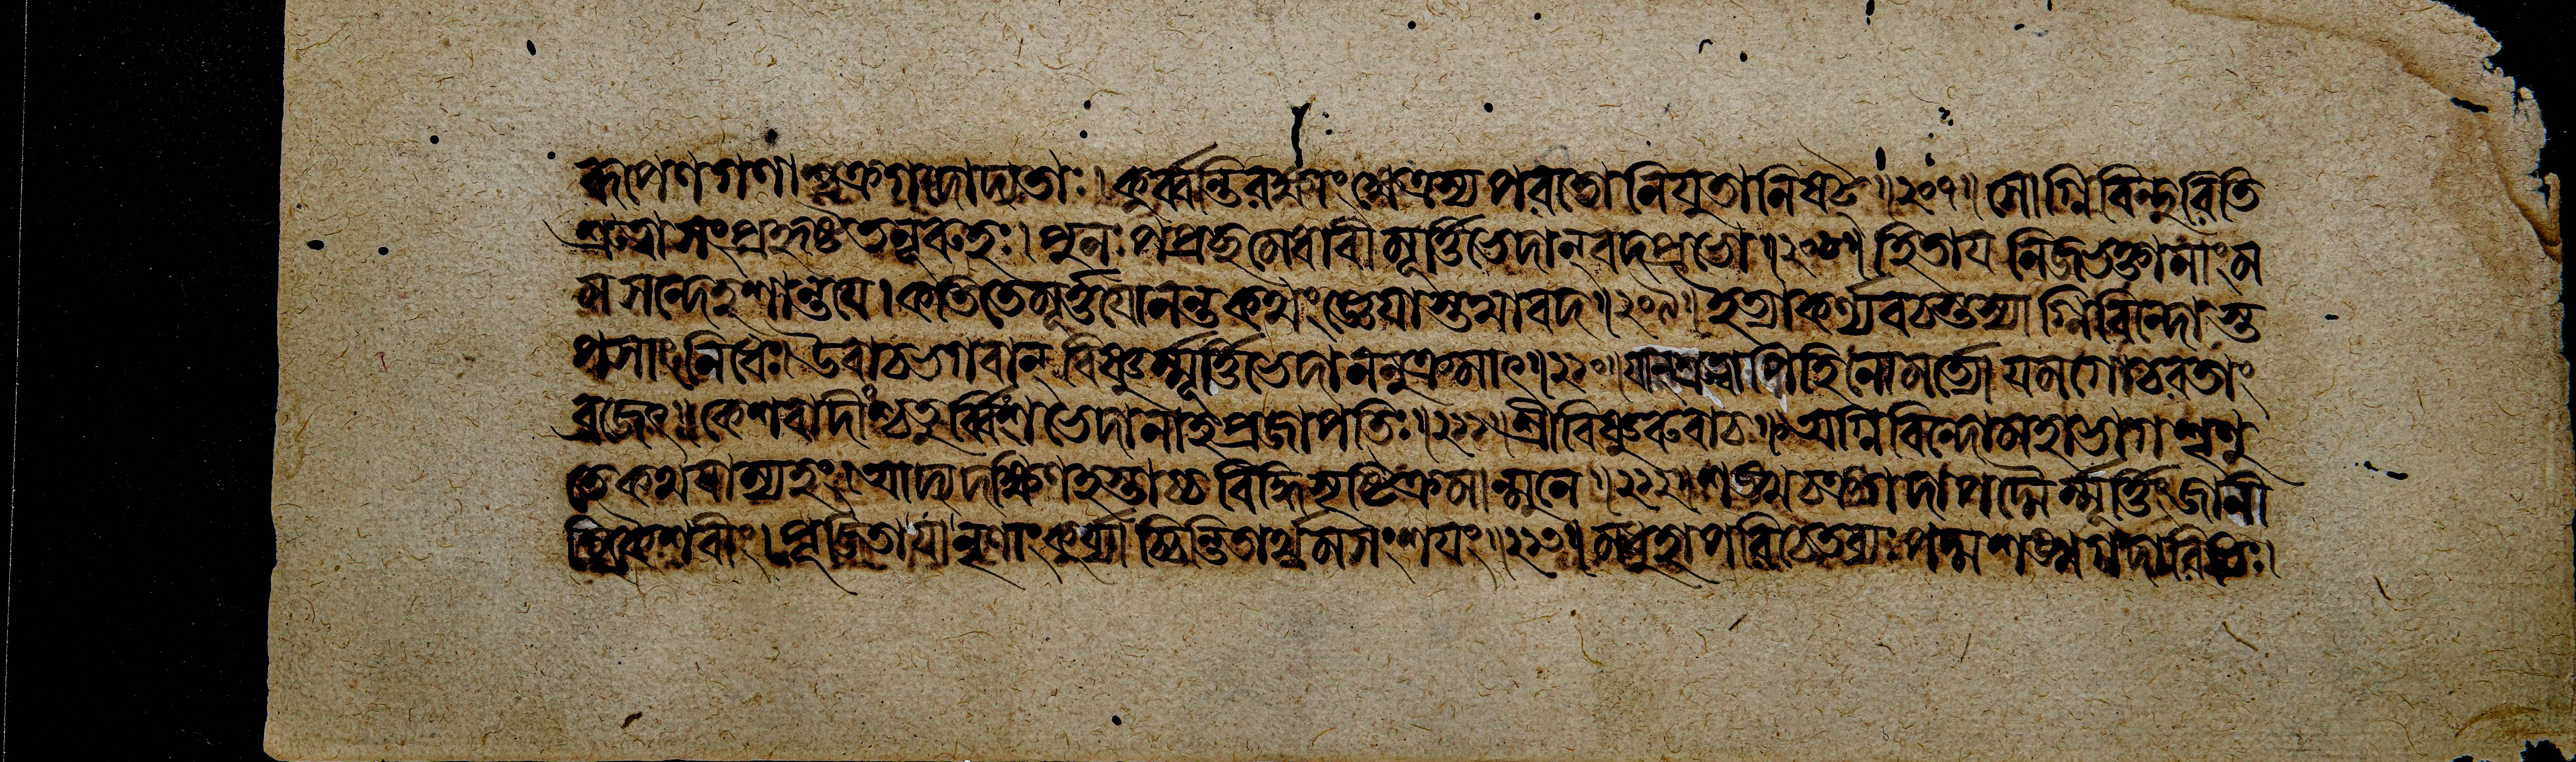 রূপেণ গণাশ্চক্রগদোদ্যতাঃ। কুর্ব্বন্তি রক্ষাং ক্ষেত্রস্য পরিতো নিযুতানি ষট্॥২০৭॥ সোগ্নিবিন্দুরিতি
শ্রুত্বা সংপ্রহৃষ্টতনূরুহঃ। পুনঃ পপ্রচ্ছ মেধাবী মূর্ত্তিভেদান্ বদ প্রভো॥২০৮॥ হিতায় নিজভক্তানাং ম
ম সন্দেহশান্তয়ে। কতি তে মূর্ত্তয়োনন্ত কথং জ্ঞেয়াস্তথা বদ॥২০৯॥ ইত্যাকর্ণ্য বচস্তস্যাগ্নিবিন্দোস্ত
পসাং নিধেঃ। উবাচ ভগবান্ বিষ্ণুর্ম্মূর্ত্তিভেদাননুক্রমাৎ॥২১০॥ যান্ শ্রুত্বাপি হি নো মর্ত্ত্যো যমগোচরতাং
ব্রজেৎ॥ কেশবাদীংশ্চতুর্ব্বিংশভেদানাহ প্রজাপতিঃ॥২১১॥ শ্রীবিষ্ণুরুবাচ॥ অগ্নিবিন্দো মহাভাগ শৃণু
তে কথয়াম্যহং। আদ্যদক্ষিণহস্তাচ্চ বিদ্ধি সৃষ্টিক্রমান্মুনে॥২১২॥ শঙ্খচক্রগদাপদ্মৈর্ম্মূর্ত্তিং জানী
হি কৈশবীং। পূজিতা যা নৃণাং কুর্য্যাচ্চিন্তিতার্থমসংশয়ং॥২১৩॥ মধুহা পরিচেতব্যঃ পদ্মশঙ্খগদারিভিঃ।